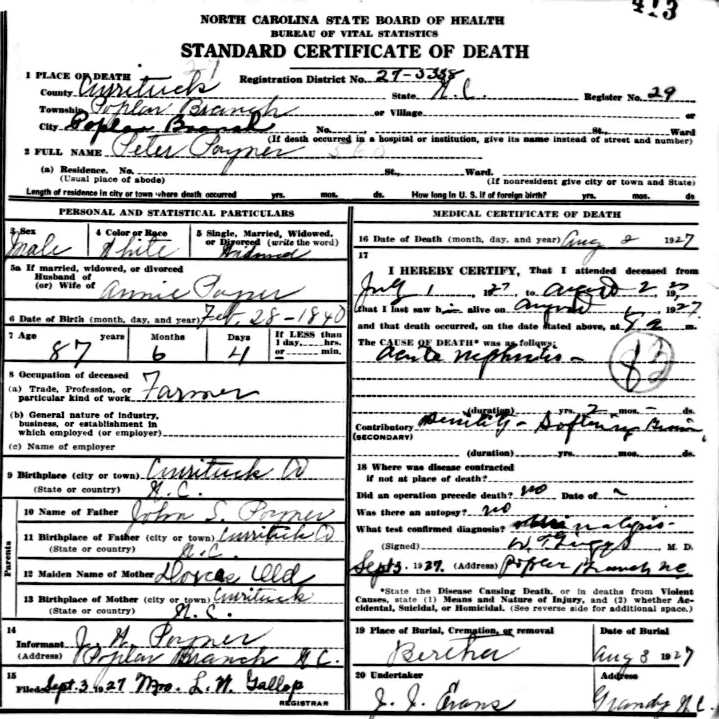 413
NORTH CAROLINA STATE BOARD OF HEALTH
BUREAU OF VITAL STATISTICS
STANDARD CERTIFICATE OF DEATH
1 PLACE OF DEATH Registration District No. 27-3358
County Currituck State N.C. Register No. 29
Township Poplar Branch or Village or
City Poplar Branch No. St., Ward
(If death occurred in a hospital or institution, give its name instead of street and number)
2 FULL NAME Peter Poyner 560
(a) Residence. No. St., Ward.
(Usual place of abode) (If nonresident give city or town and State)
Length of residence in city or town where death occurred yrs. mos. ds. How long in U. S. if of foreign birth? yrs. mos. ds.
PERSONAL AND STATISTICAL PARTICULARS
3 Sex 4 Color or Race 5 Single, Married, Widowed,
or Divorced (write the word)
Male White Widowed
5a If married, widowed, or divorced
Husband of
(or) Wife of Annie Poyner
6 Date of Birth (month, day, and year) Feb, 28-1840
7 Age years Months Days If LESS than
1 day, hrs.
or min.
87 6 4
8 Occupation of deceased
(a) Trade, Profession, or
particular kind of work Farmer
(b) General nature of industry,
business, or establishment in
which employed (or employer)
(c) Name of employer
9 Birthplace (city or town) Currituck Co
(State or country) N.C.
Parents
10 Name of Father John S. Poyner
11 Birthplace of Father (city or town) Currituck Co
(State or country) N.C.
12 Maiden Name of Mother Dorcas Old
13 Birthplace of Mother (city or town) Currituck
(State or country) N.C.
14
Informant J. Poyner
(Address) Poplar Branch N.C.
15
Filed Sept. 3, 1927 Mrs. L. N. Gallop
REGISTRAR
MEDICAL CERTIFICATE OF DEATH
16 Date of Death (month, day, and year) Aug 2 1927
17
I HEREBY CERTIFY, That I attended deceased from
July 1, 1927, to August 2 1927,
that I last saw him alive on August 1927
and that death occurred, on the date stated above, at m.
The CAUSE OF DEATH* was as follows:
Acute nephritis -
(duration) yrs. 2 mos. - ds.
Contributory Senility - Softening Brain
(SECONDARY)
(duration) yrs. mos. ds.
18 Where was disease contracted
if not at place of death?
Did an operation precede death? no Date of
Was there an autopsy? no
What test confirmed diagnosis? urinalysis-
(Signed) W. T. Griggs, M. D.
Sept 3, 1927. (Address) Poplar Branch NC
*State the Disease Causing Death, or in deaths from Violent
Causes, state (1) Means and Nature of Injury, and (2) whether Ac-
cidental, Suicidal, or Homicidal. (See reverse side for additional space.)
19 Place of Burial, Cremation, or removal Date of Burial
Bertha Aug 3 1927
20 Undertaker Address
J. J. Evans Grandy N.C.